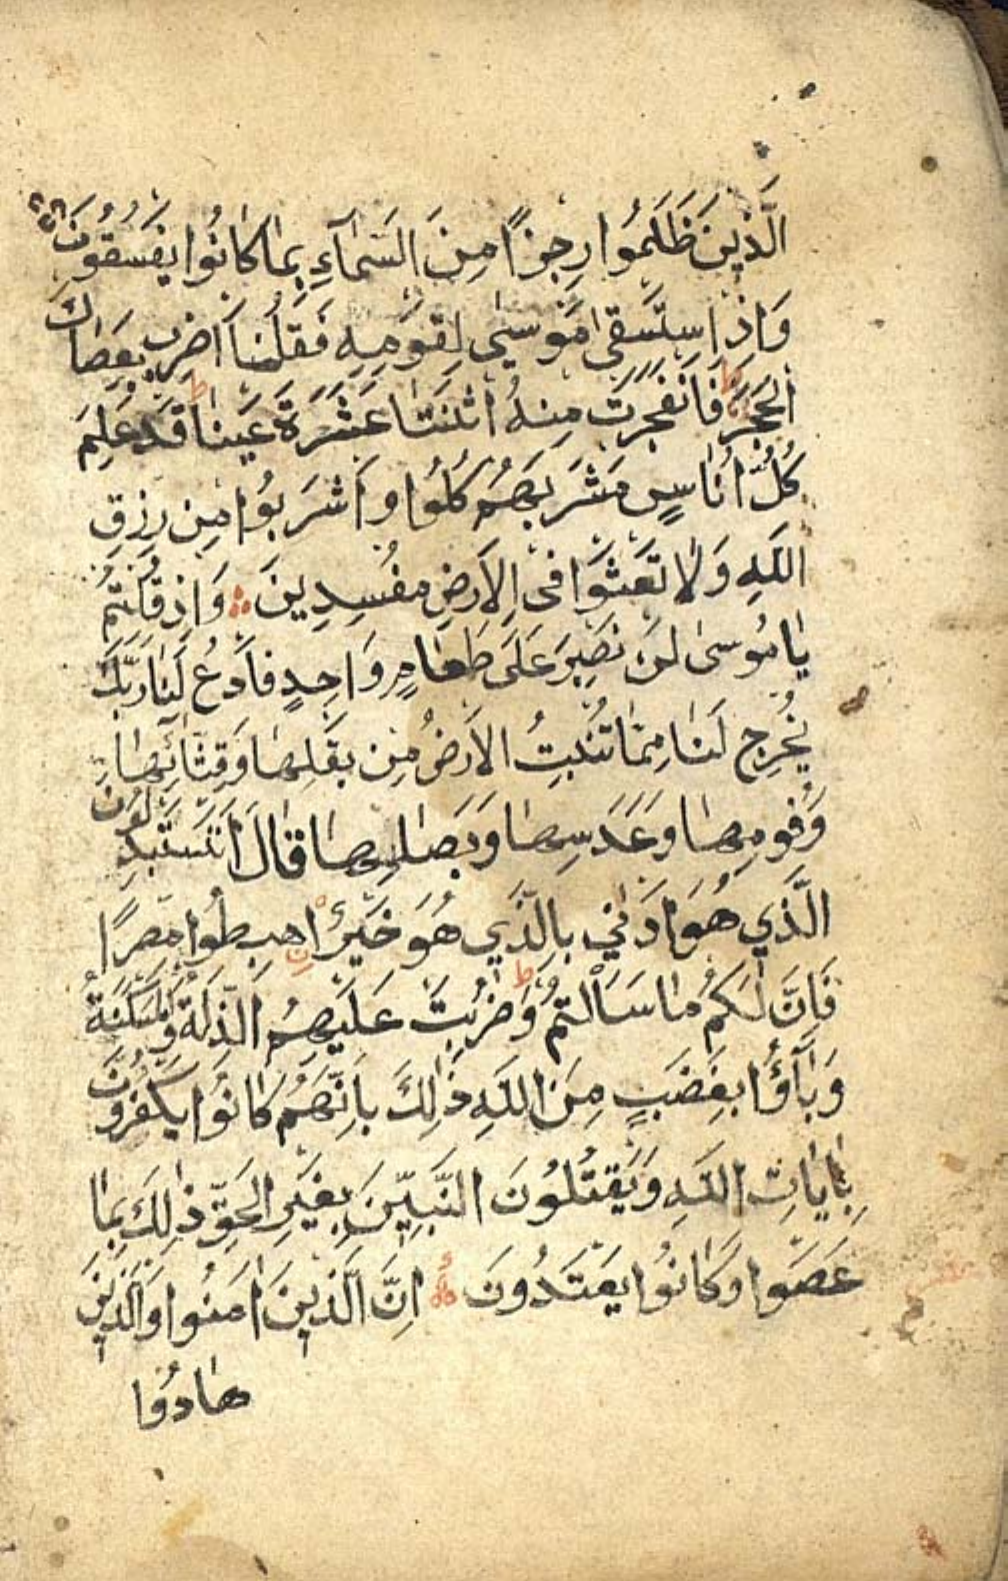 الَّذينَ ظَلَمُوا رِجزًا مِنَ السَّمآءِ بِمٰا كٰانُوا يَفسُقُونَ
وَاِذِا ستَسقىٰ مُوسىٰ لِقَومِهِ فَقُلنَا اضرِب بِعَصٰاكَ
الحَجَرَ فَانفَجَرَت مِنهُ اثنَتٰا عَشرَةَ عَينًا قَد عَلِمَ
كُلُّ اُنٰاسٍ مَشرَبَهُم كُلُوا وَاشرَبُوا مِن رِزقِ
اللّٰهِ وَلٰا تَعثَوا فِى الاَرضِ مُفسِدِينَ وَاِذ قُلتُم
يٰا مُوسىٰ لَن نَصبِرَ عَلىٰ طَعٰامٍ وٰاحِدٍ فَادعُ لَنٰا رَبَّكَ
يُخرِج لَنٰا مِمّٰا تُنبِتُ الاَرضُ مِن بَقلِهٰا وَقِثّٰائِهٰا
وَفُومِهٰا وَعَدَسِهٰا وَبَصَلِهٰا قٰالَ اَتَستَبدِلُونَ
الَّذِي هُوَ اَدنىٰ بِالَّذِي هُوَ خَيرٌ اهبِطُوا مِصرًا
فَاِنَّ لَكُم مٰا سَاَلتُم وَضُرِبَت عَلَيهِمُ الذِّلَّةُ وَالمَسكَنَةُ
وَبٰآؤُا بِغَضَبٍ مِنَ اللّٰهِ ذٰلِكَ بِاَنَّهُم كٰانُوا يَكفُرُونَ
بِاٰيٰاتِ اللّٰهِ وَيَقتُلُونَ النَّبِيّينَ بِغَيرِ الحَقِّ ذٰلِكَ بِمٰا
عَصَوا وَكٰانُوا يَعتَدُونَ اِنَّ الَّذينَ اٰمَنُوا وَالَّذينَ
هٰادُوا